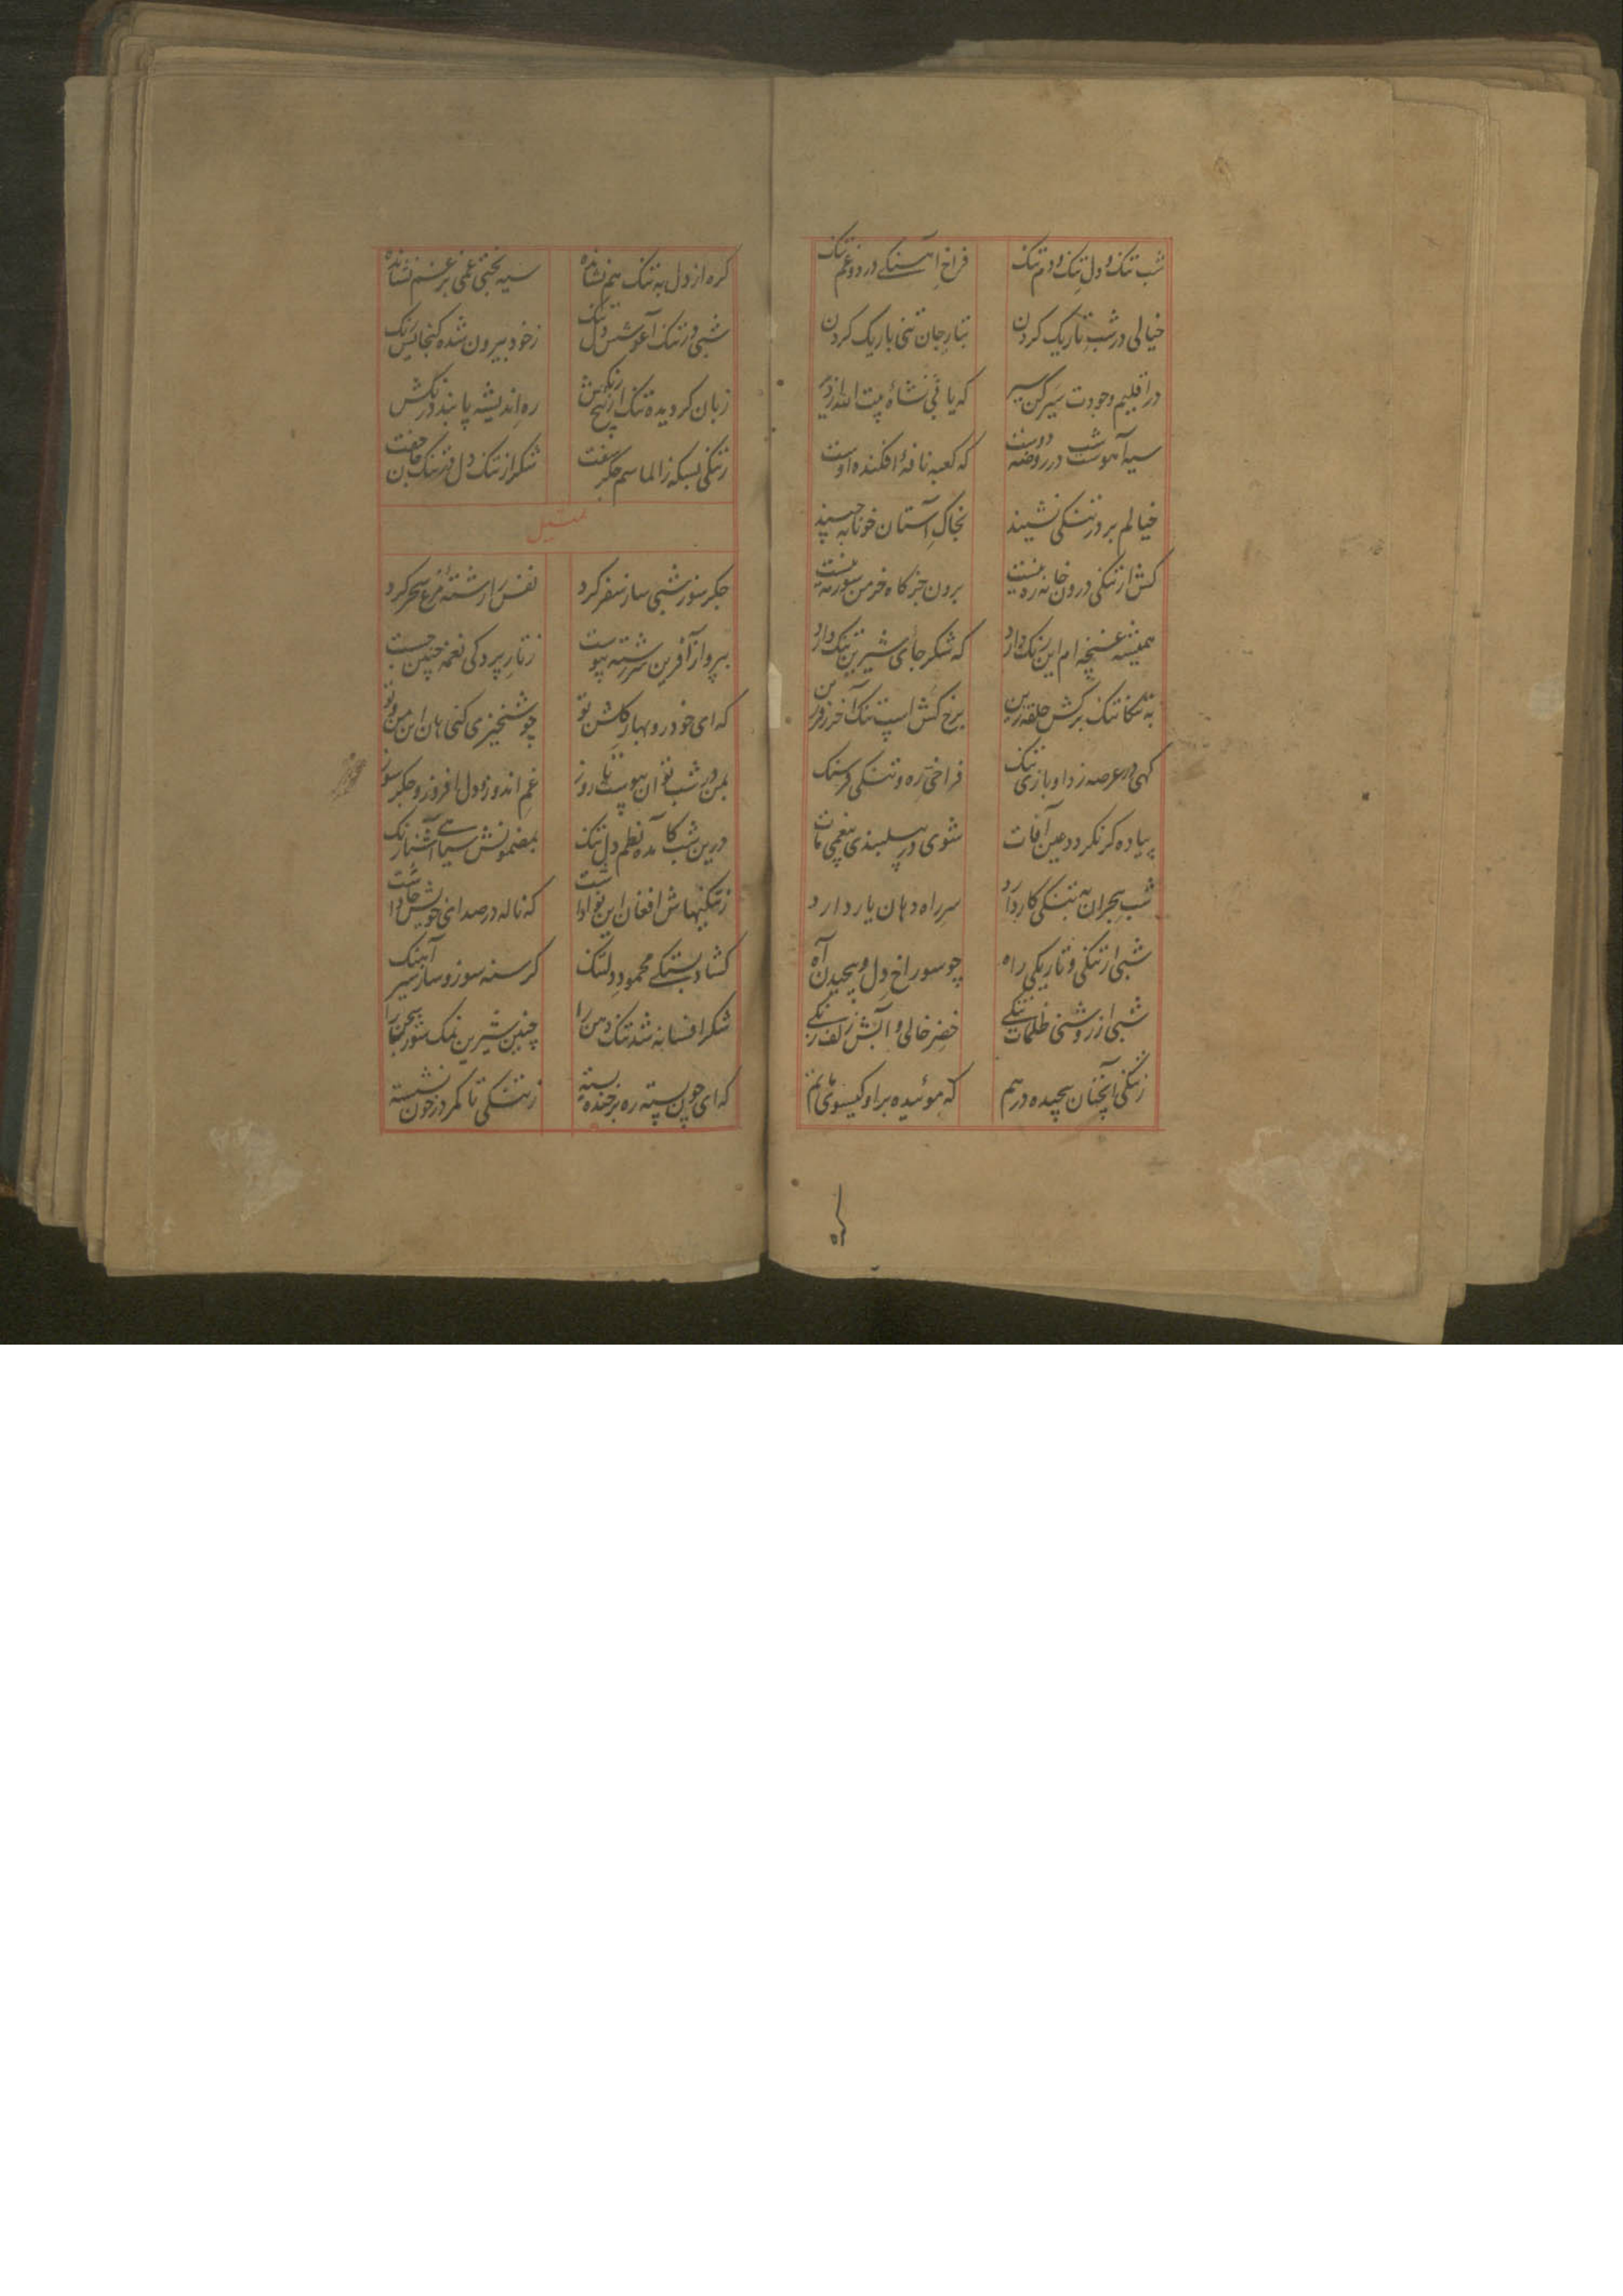 شب تنک و دل تنک و دم تنک فراخ آهنکی درد و غم تنک
خیالی در شب تاریک کردن بتار جان تنی باریک کردن
در اقلیم وجودت سیر کن سیر که یابی نشاهٔ بیت الله از دیر
سیه آهوست شب در روضه دوست که کعبه نافهٔ افکنده اوست
خیالم بر در تنکی نشیند بخاک آستان خونابه چیند
کش از تنکی درون خانه ره نیست برون جز کاه خرمن سوز مه نیست
همیشه غنچه ام این رنک دارد که شکر جای شیرین تنک دارد
به تنکاتنک برکش حلقه زین برخ کش اسپ تنک آخر
کهی در عرصه زد او بازی تنک فراخی ره و تنکی فرسنک
پیاده کر نکردد عین آفات شوی در پیلبندی غمی مات
شب هجران به تنکی کار دارد سر راه دهان یار دارد
شبی از تنکی و تاریکی راه چو سوراخ دل و پیچیدن آه
شبی از روشنی ظلمات تنکی خضر خالی و آبش زلف زنکی
ز تنکی آنچنان پیچیده در هم که موئیده برو کیسوی ماتم
کره از دل به تنک هم نشانده سیه بختی غمی بر غم نشانده
شبی در تنک آغوشش دل تنک ز خود بیرون شده کنجایش رنک
زبان کردیده تنک از رنکش ره اندیشه پا بند درنکش
ز تنکی بسکه ز الماسم جکر سفت شکر از تنک دل
تمثیل
جکر سوز شبی ساز سفر کرد نفس را رشته مرغ سحر کرد
بپرواز آفرین سررشته پیوست ز تار پردکی نغمه چنین جست
که ای خود رو بهار کلشن تو چو شبخیزی کنی هان این من و تو
بمن در شب توان پیوست تا روز غم اندوز و دل افروز و جکر سوز
درین شب کامده نظم دل تنک بمضمونش سیاهی آشنا رنک
ز تنکیهاش افغان این نوا داشت که ناله در صدای خویش جا داشت
کشاد بستکی محمود دلتنک کرسنه سوز و ساز سیر آهنک
شکر افسانه شد تنک دهن را چنین شیرین نمک شور سخن را
که ای چون پسته ره بر خنده بسته ز تنکی تا کمر در خون نشسته